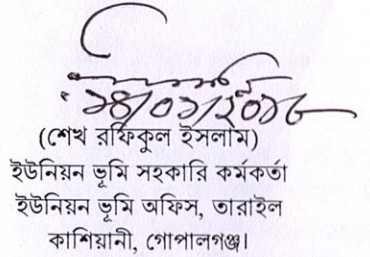 ১৪/০১/২০১৮
(শেখ রফিকুল ইসলাম)
ইউনিয়ন ভূমি সহকারি কর্মকর্তা
ইউনিয়ন ভূমি অফিস, তারাইল
কাশিয়ানী, গোপালগঞ্জ।